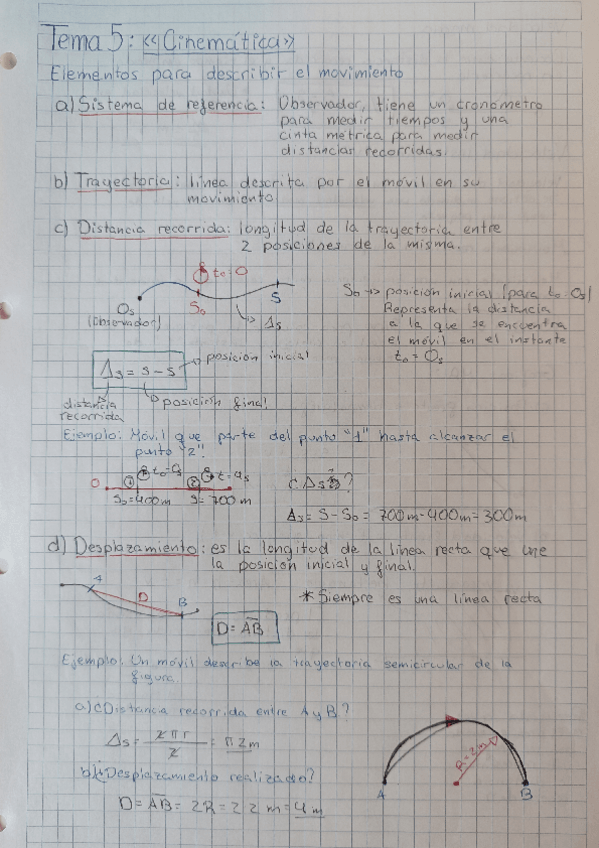 Tema 5: «Cinemática»
Elementos para describir el movimiento
a) Sistema de referencia: Observador, tiene un cronómetro
para medir tiempos y una
cinta métrica para medir
distancias recorridas.
b) Trayectoria: línea descrita por el móvil en su
movimiento
c) Distancia recorrida: longitud de la trayectoria entre
2 posiciones de la misma.
t₀=0
Os
(Observador)
S₀
S
Δs
S₀ → posición inicial (para t₀=0s)
Representa la distancia
a la que se encuentra
el móvil en el instante
t₀=0s
Δs = s - s
posición inicial
distancia
recorrida
posición final
Ejemplo: Móvil que parte del punto "1" hasta alcanzar el
punto "2".
O
1
t₀=0s
2
S₀=400m
S=700m
¿Δs?
Δs= S-S₀ = 700m-400m=300m
d) Desplazamiento: es la longitud de la línea recta que une
la posición inicial y final.
A
D
B
D=AB
*Siempre es una línea recta
Ejemplo: Un móvil describe la trayectoria semicircular de la
figura
a) ¿Distancia recorrida entre A y B?
Δs = 2πr/2 = π2m
b) ¿Desplazamiento realizado?
D=AB=2R=2 2 m=4m
R=2m
A
B